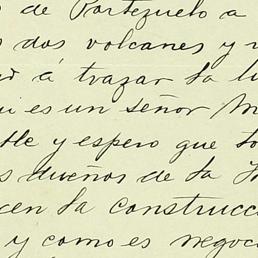 de Portezuelo a
dos volcanes y
á trazar la
es un señor
y espero que
dueños de la
la construcc
y como es negoc